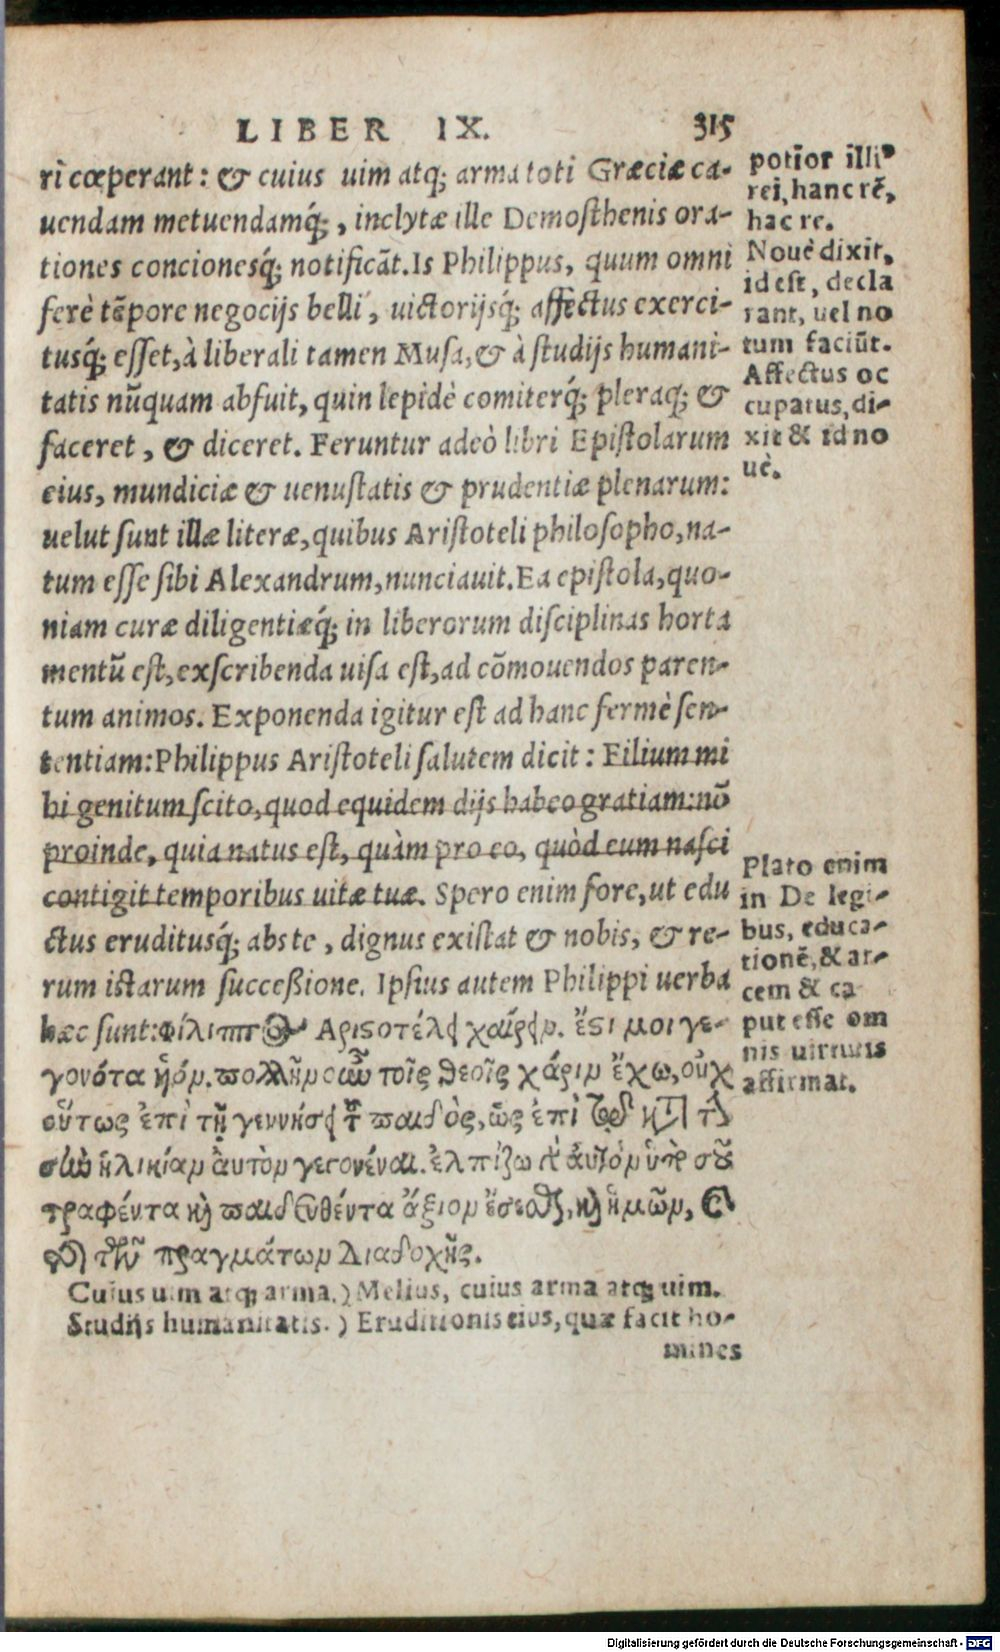 LIBER IX. 315
ri cœperant: & cuius uim atq; arma toti Græciæ ca-
uendam metuendamq́;, inclytæ ille Demosthenis ora-
tiones concionesq́; notificãt. Is Philippus, quum omni
ferè tẽpore negocijs belli, uictorijsq́; affectus exerci-
tusq́; esset, à liberali tamen Musa, & à studijs humani-
tatis nũquam abfuit, quin lepidè comiterq́; pleraq; &
faceret, & diceret. Feruntur adeò libri Epistolarum
eius, mundiciæ & uenustatis & prudentiæ plenarum:
uelut sunt illæ literæ, quibus Aristoteli philosopho, na-
tum esse sibi Alexandrum, nunciauit. Ea epistola, quo-
niam curæ diligentiæq́; in liberorum disciplinas horta
mentũ est, exscribenda uisa est, ad cõmouendos paren-
tum animos. Exponenda igitur est ad hanc fermè sen-
tentiam: Philippus Aristoteli salutem dicit: Filium mi
hi genitum scito, quod equidem dijs habeo gratiam: nõ
proinde, quia natus est, quàm pro eo, quòd eum nasci
contigit temporibus uitæ tuæ. Spero enim fore, ut edu
ctus eruditusq́; abs te, dignus existat & nobis, & re-
rum istarum successione. Ipsius autem Philippi uerba
hæc sunt: φίλιππος Αριστοτέλει χαίρειν. ἔστι μοι γε-
γονότα ἡόν. πολλὴν οὖν τοῖς θεοῖς χάριν ἔχω, οὐχ
οὕτως ἐπὶ τῇ γεννήσει τοῦ παιδὸς, ὡς ἐπὶ τῷ κατὰ τὴν
σὴν ἡλικίαν αὐτὸν γεγονέναι. ἐλπίζω γὰρ αὐτὸν ὑπὸ σοῦ
τραφέντα καὶ παιδευθέντα ἄξιον ἔσεσθαι, καὶ ἡμῶν, καὶ
τῆς τῶν πραγμάτων διαδοχῆς.
Cuius uim atq; arma.) Melius, cuius arma atq; uim.
Studijs humanitatis.) Eruditionis eius, quæ facit ho-
mines
potior illi
rei, hanc rẽ,
hac re.
Nouè dixit,
id est, decla
rant, uel no
tum faciũt.
Affectus oc
cupatus, di-
xit & id no
uè.
Plato enim
in De legi-
bus, educa-
tionẽ, & ar-
cem & ca
put esse om
nis uirtutis
affirmat.
Digitalisierung gefördert durch die Deutsche Forschungsgemeinschaft - DFG